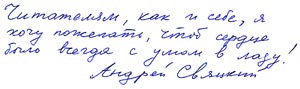 Читателям, как и себе, я
хочу пожелать, чтоб сердце
было всегда с умом в ладу!
Андрей